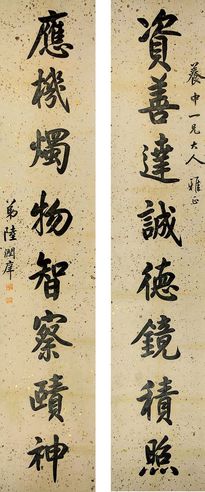 養中一兄大人雅正
資善達誠德鏡積照
應機燭物智察賾神
弟陸潤庠